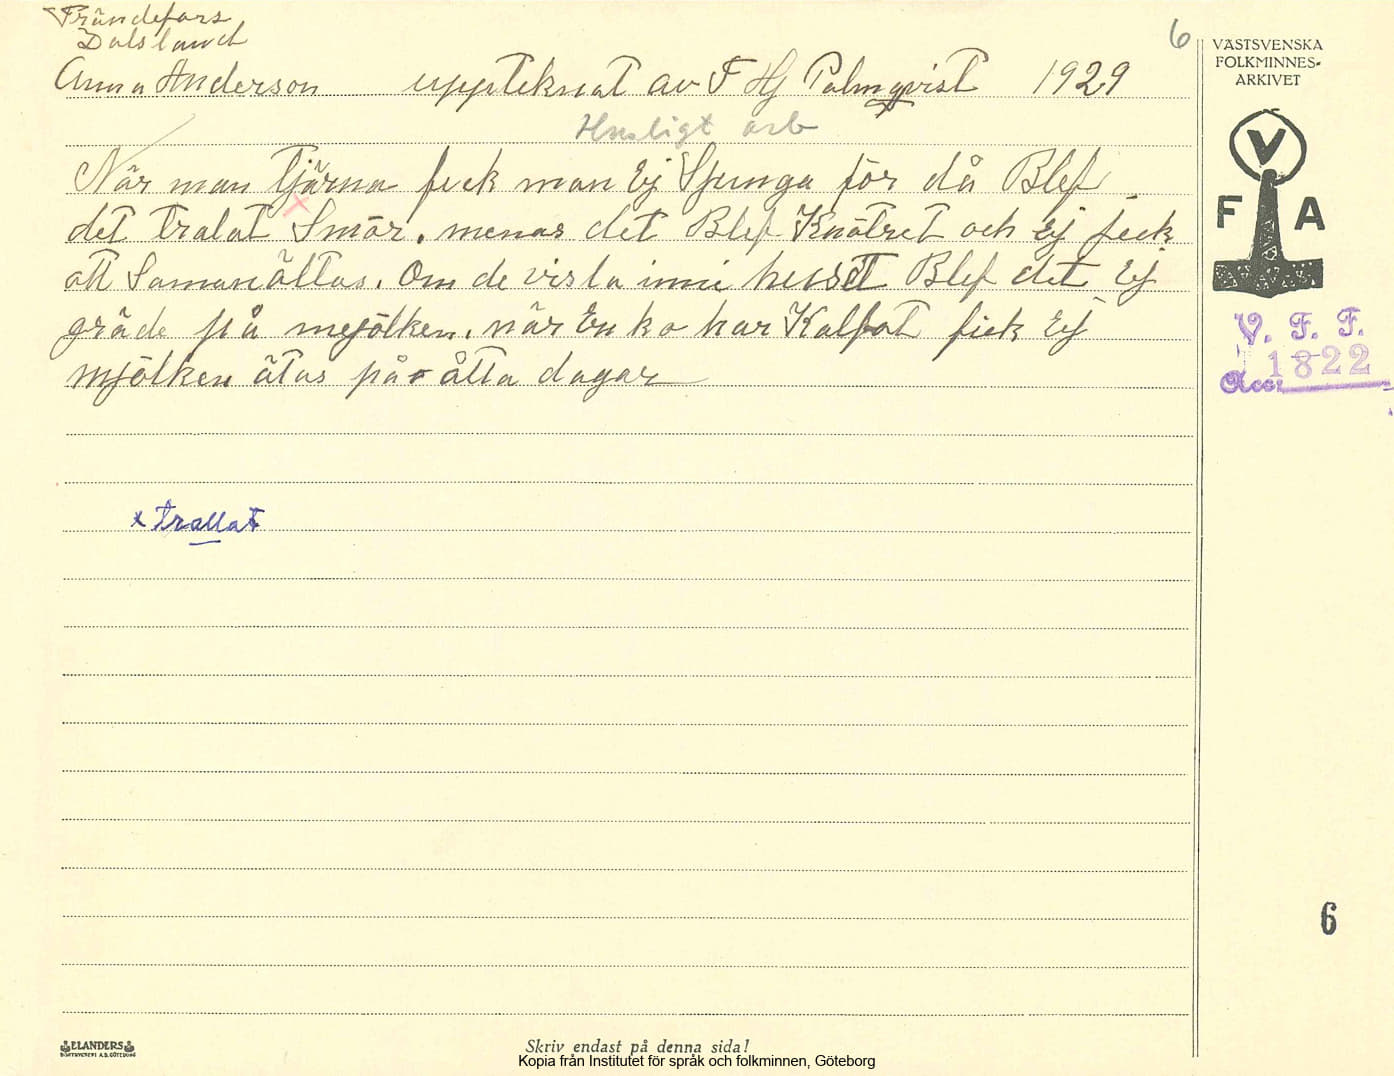 Frändefors
Dalsland
6
Anna Anderson uppteknat av F Hj Palmqvist 1929
Husligt arb
När man Tjärna feck man Ej Sjunga för då Blef
det tralat x Smör. menas det Blef Knötret och Ej feck
att Samanältas. Om de visla inni huset Blef det Ej
gräde på mejölken. när En ko har Kalfvat fick Ej
mjölken ätas på åtta dagar
x trallat
VÄSTSVENSKA
FOLKMINNES-
ARKIVET
V
F A
V. F. F.
1822
Acc:
6
ELANDERS
BOKTRYCKERI A.B. GÖTEBORG
Skriv endast på denna sida!
Kopia från Institutet för språk och folkminnen, Göteborg